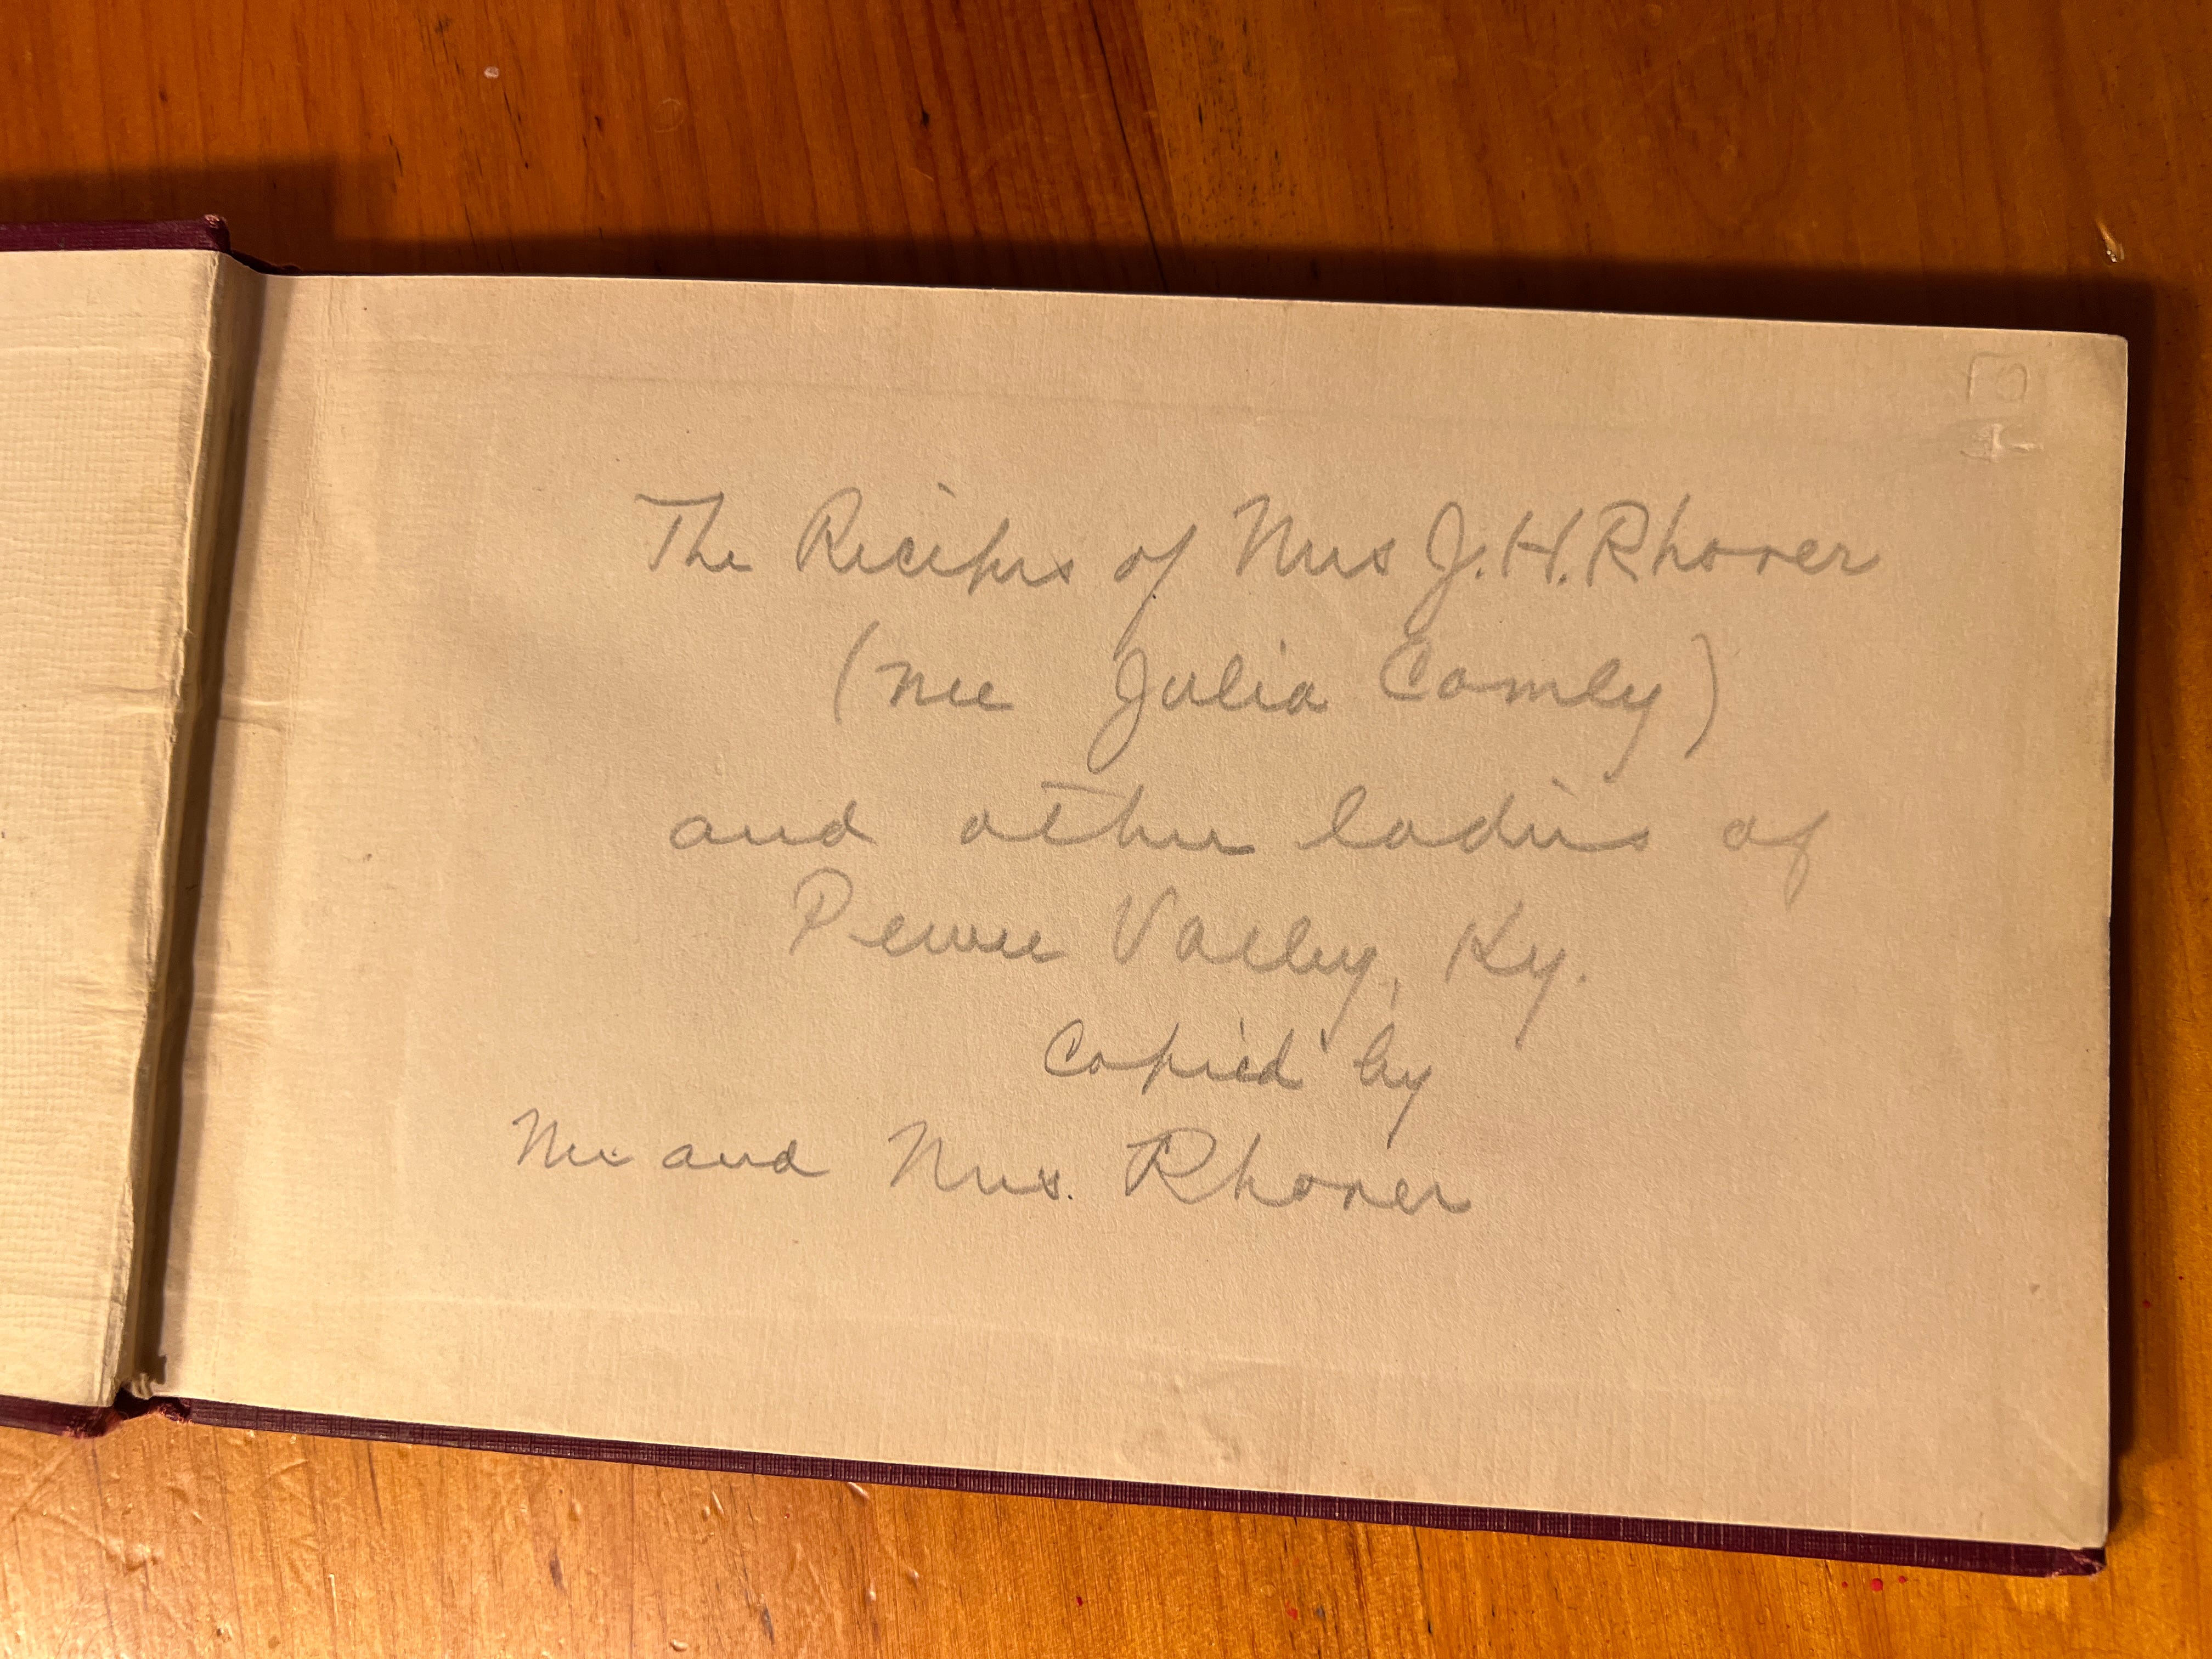 The Recipes of Mrs J. H. Rhorer
(nee Julia Comly)
and other ladies of
Pewee Valley, Ky.
Copied by
Me and Mrs. Rhorer